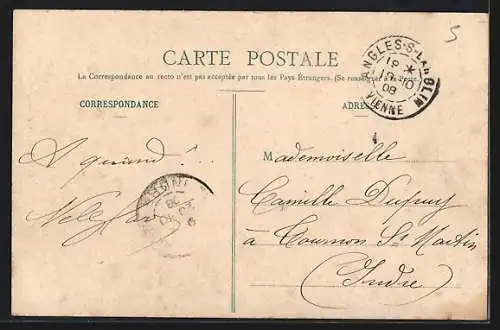 5
CARTE POSTALE
La Correspondance au recto n'est pas acceptée par tous les Pays Étrangers. (Se renseigner à la Poste
CORRESPONDANCE
ADRES
ANGLES-S-L'ANGLIN
18 *
19 10
08
VIENNE
4
A quand ?...
Mademoiselle
Camille Dupuy
à Tournon St Martin
(Indre)